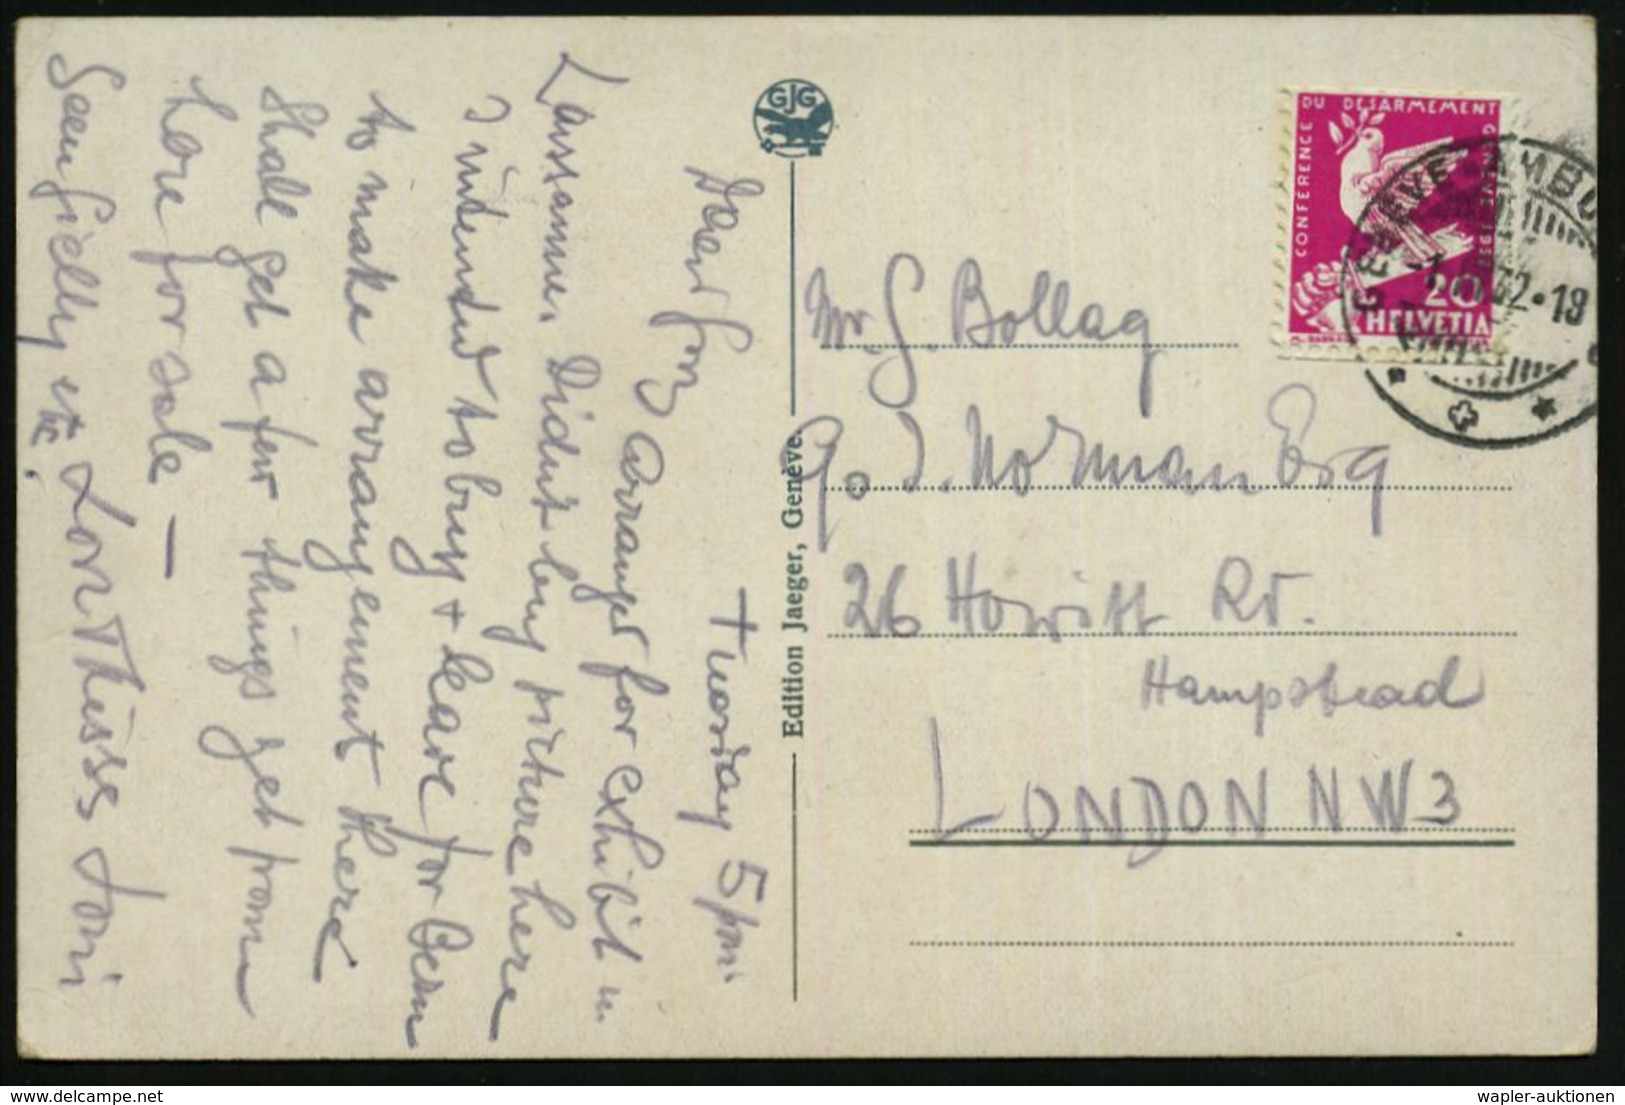 Tuesday 5 pm.
Dear
arranged for exhibit in
Lausanne. Didn't buy picture here
I intend to buy + leave for Bern
to make arrangement there
Shall get a few things get from
here for sale —
Seen Gielly etc. Love + Kisses Toni
GJG
Edition Jaeger, Genève.
CONFERENCE DU DESARMEMENT GENEVE 1932
20
HELVETIA
GENEVE AMBU
32-19
Mr. G. Bollag
c/o I. Norman Esq
26 Howitt Rd.
Hampstead
LONDON NW3
wapler-auktionen